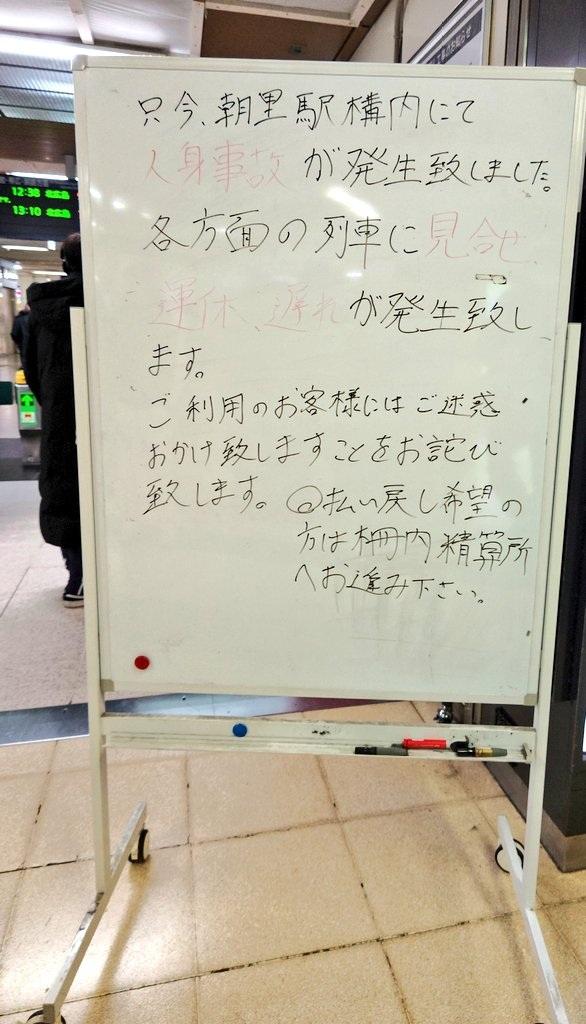 只今、朝里駅構内にて
人身事故が発生致しました。
各方面の列車に見合せ、
運休、遅れが発生致し
ます。
ご利用のお客様にはご迷惑
おかけ致しますことをお詫び
致します。◎払い戻し希望の
方は柵内精算所
へお進み下さい。
12:38
13:10